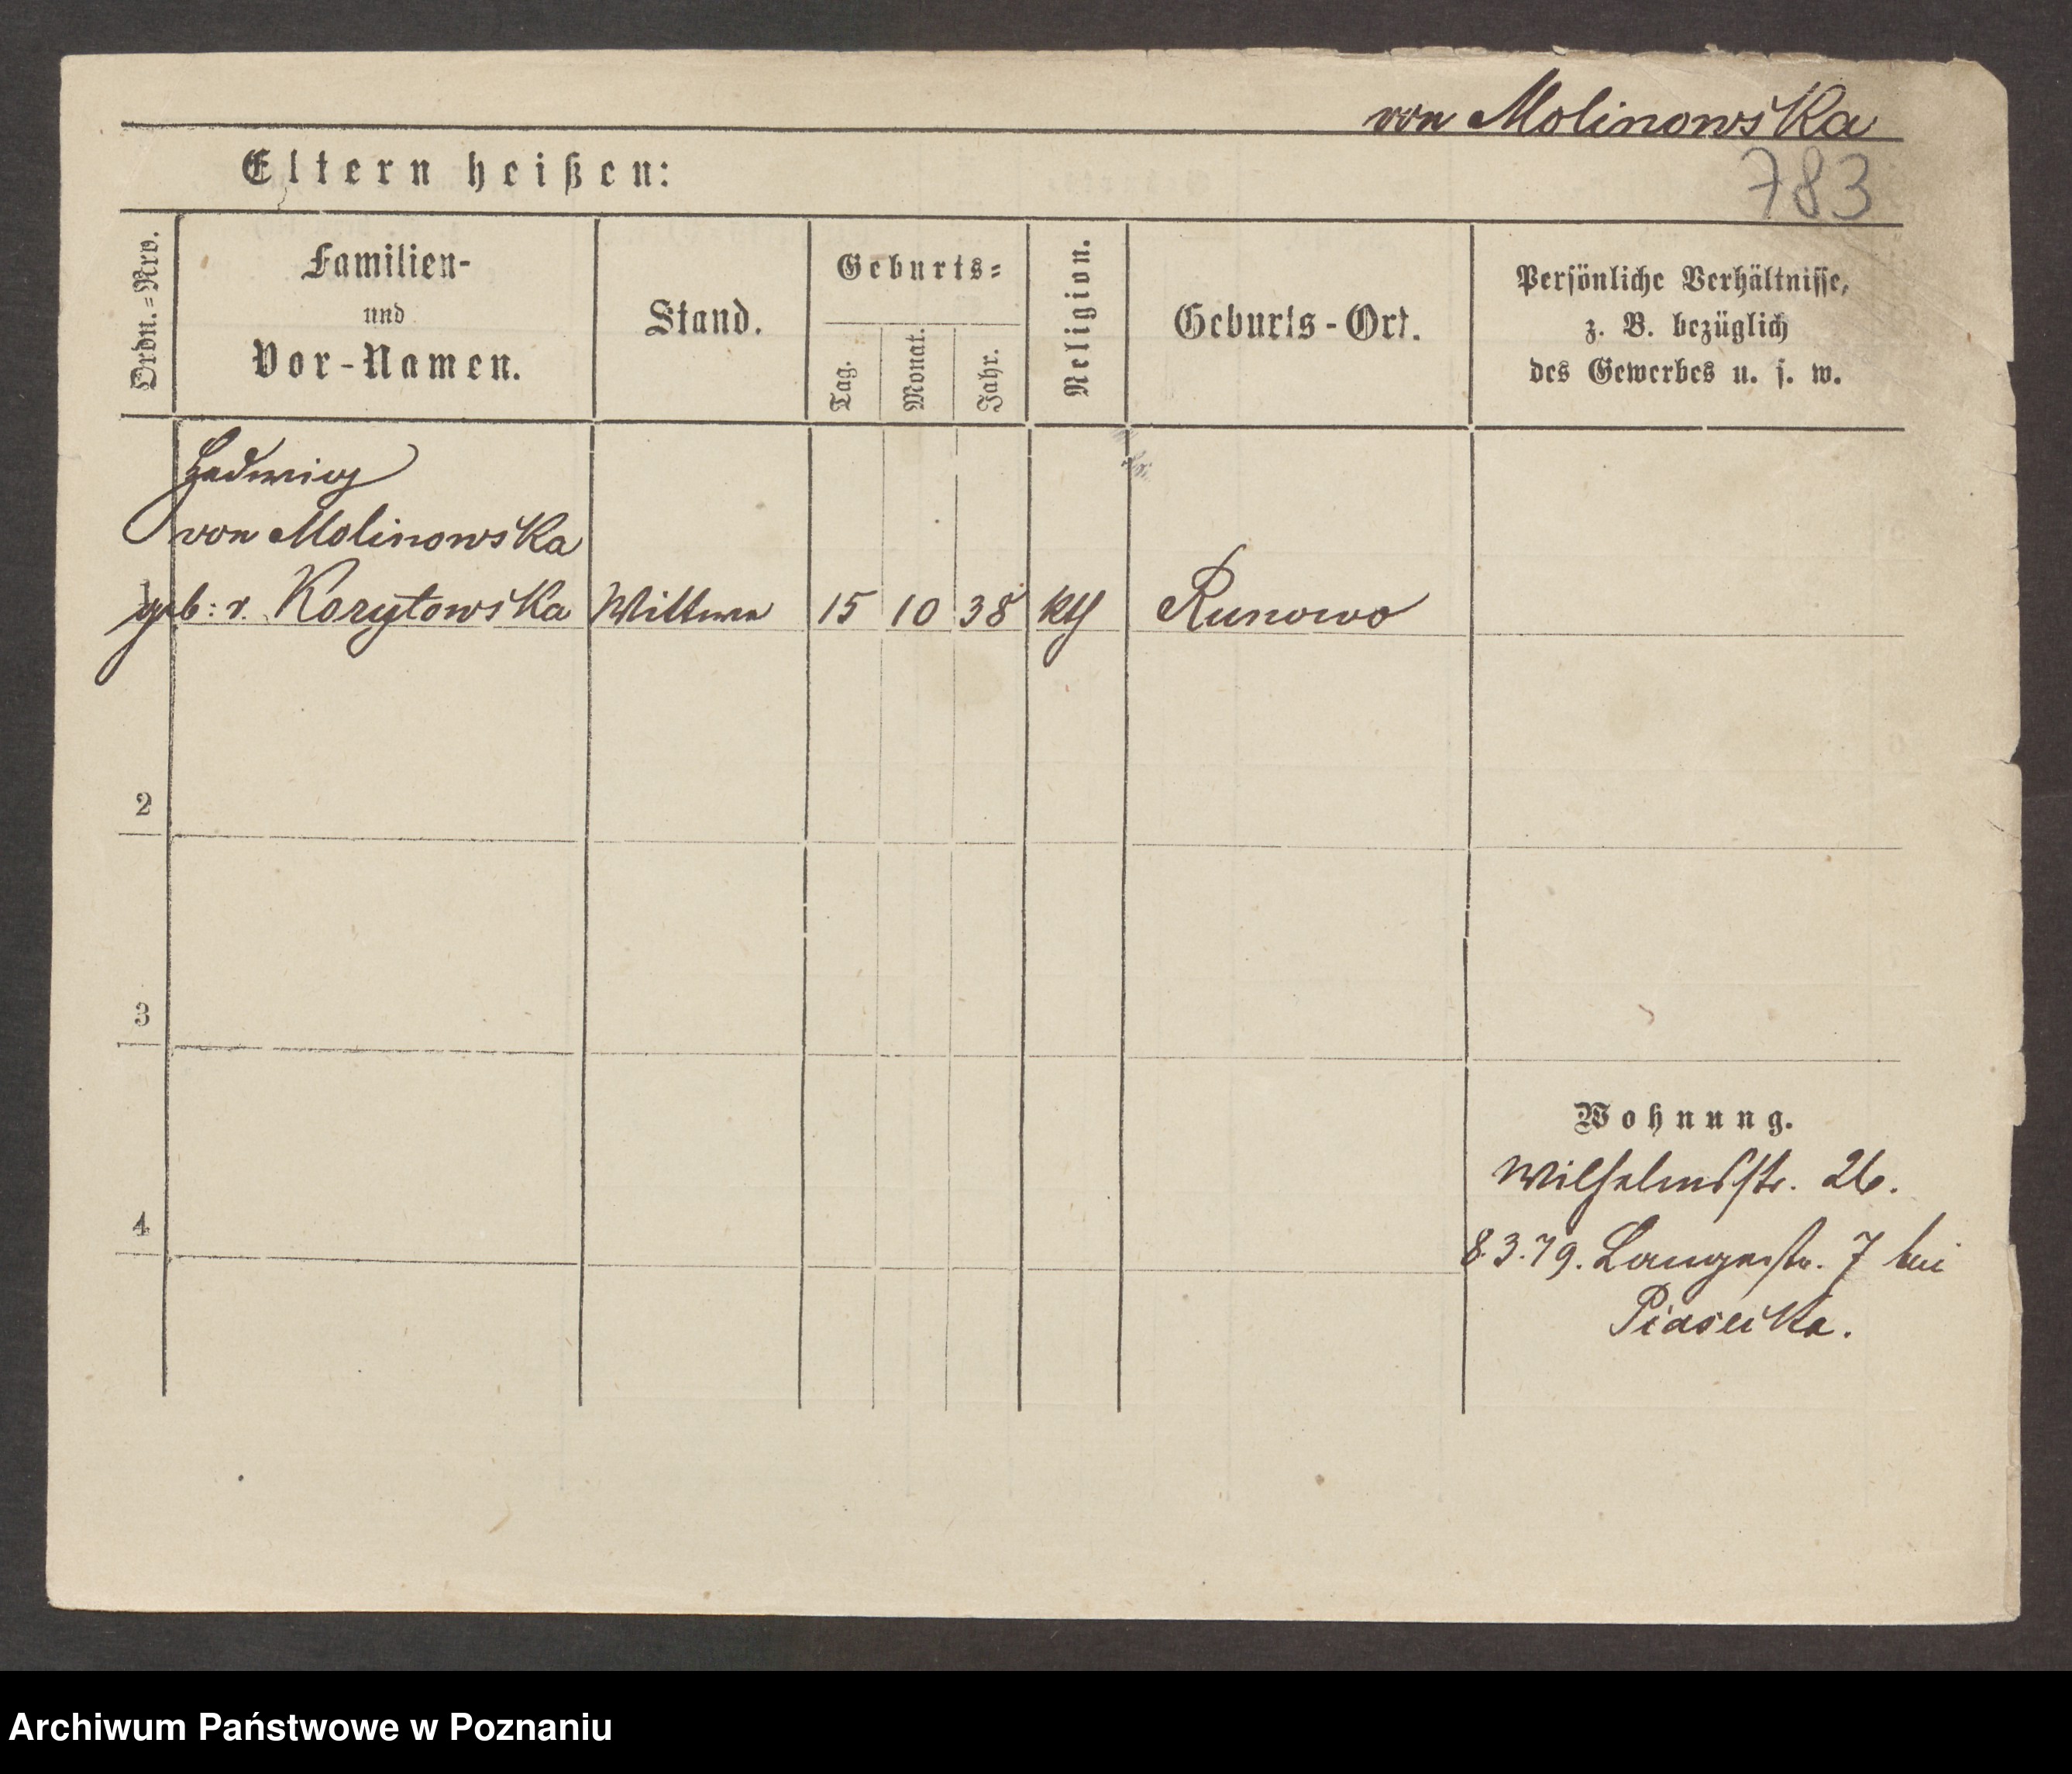 von Molinowska
Eltern heißen:
783
Ordn.=Nro.
Familien-
und
Vor-Namen.
Stand.
Geburts=
Tag.
Monat.
Jahr.
Religion.
Geburts-Ort.
Persönliche Verhältnisse,
z. B. bezüglich
des Gewerbes u. s. w.
Hedwig
von Molinowska
1 geb: v. Korytowska Wittwe 15 10 38 kth Runowo
2
3
4
Wohnung.
Wilhelmsstr. 26.
8.3.79. Langestr. 7 bei
Piasecka.
Archiwum Państwowe w Poznaniu